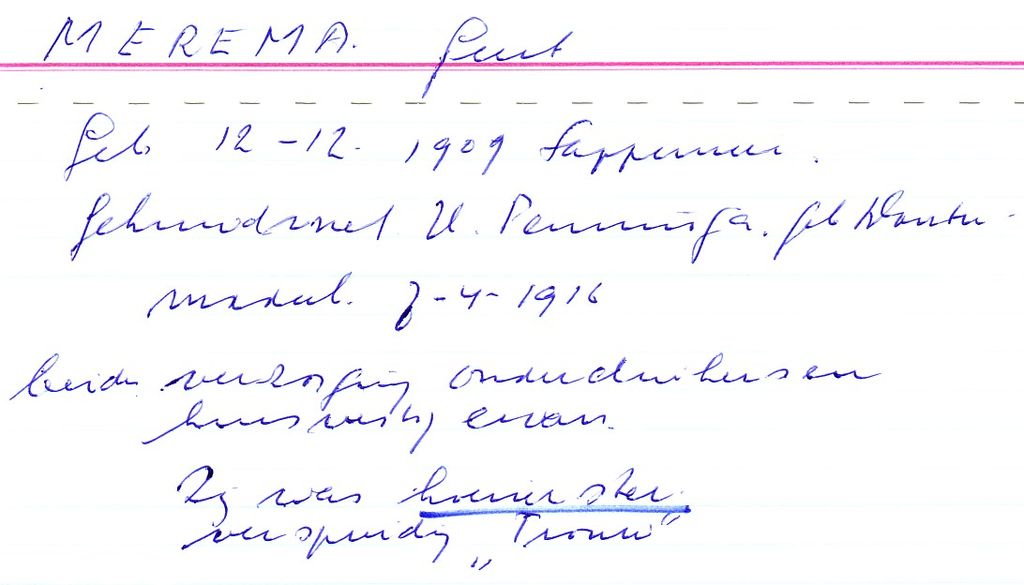 MEREMA. Geert
Geb 12-12. 1909 Sappemeer.
Gehuwd met H. Penninga. geb Dantu-
madeel. 7-4-1916
beide verzorging onderduikers en
huisvesting ervan.
Zij was koerierster.
verspreiding „Trouw"